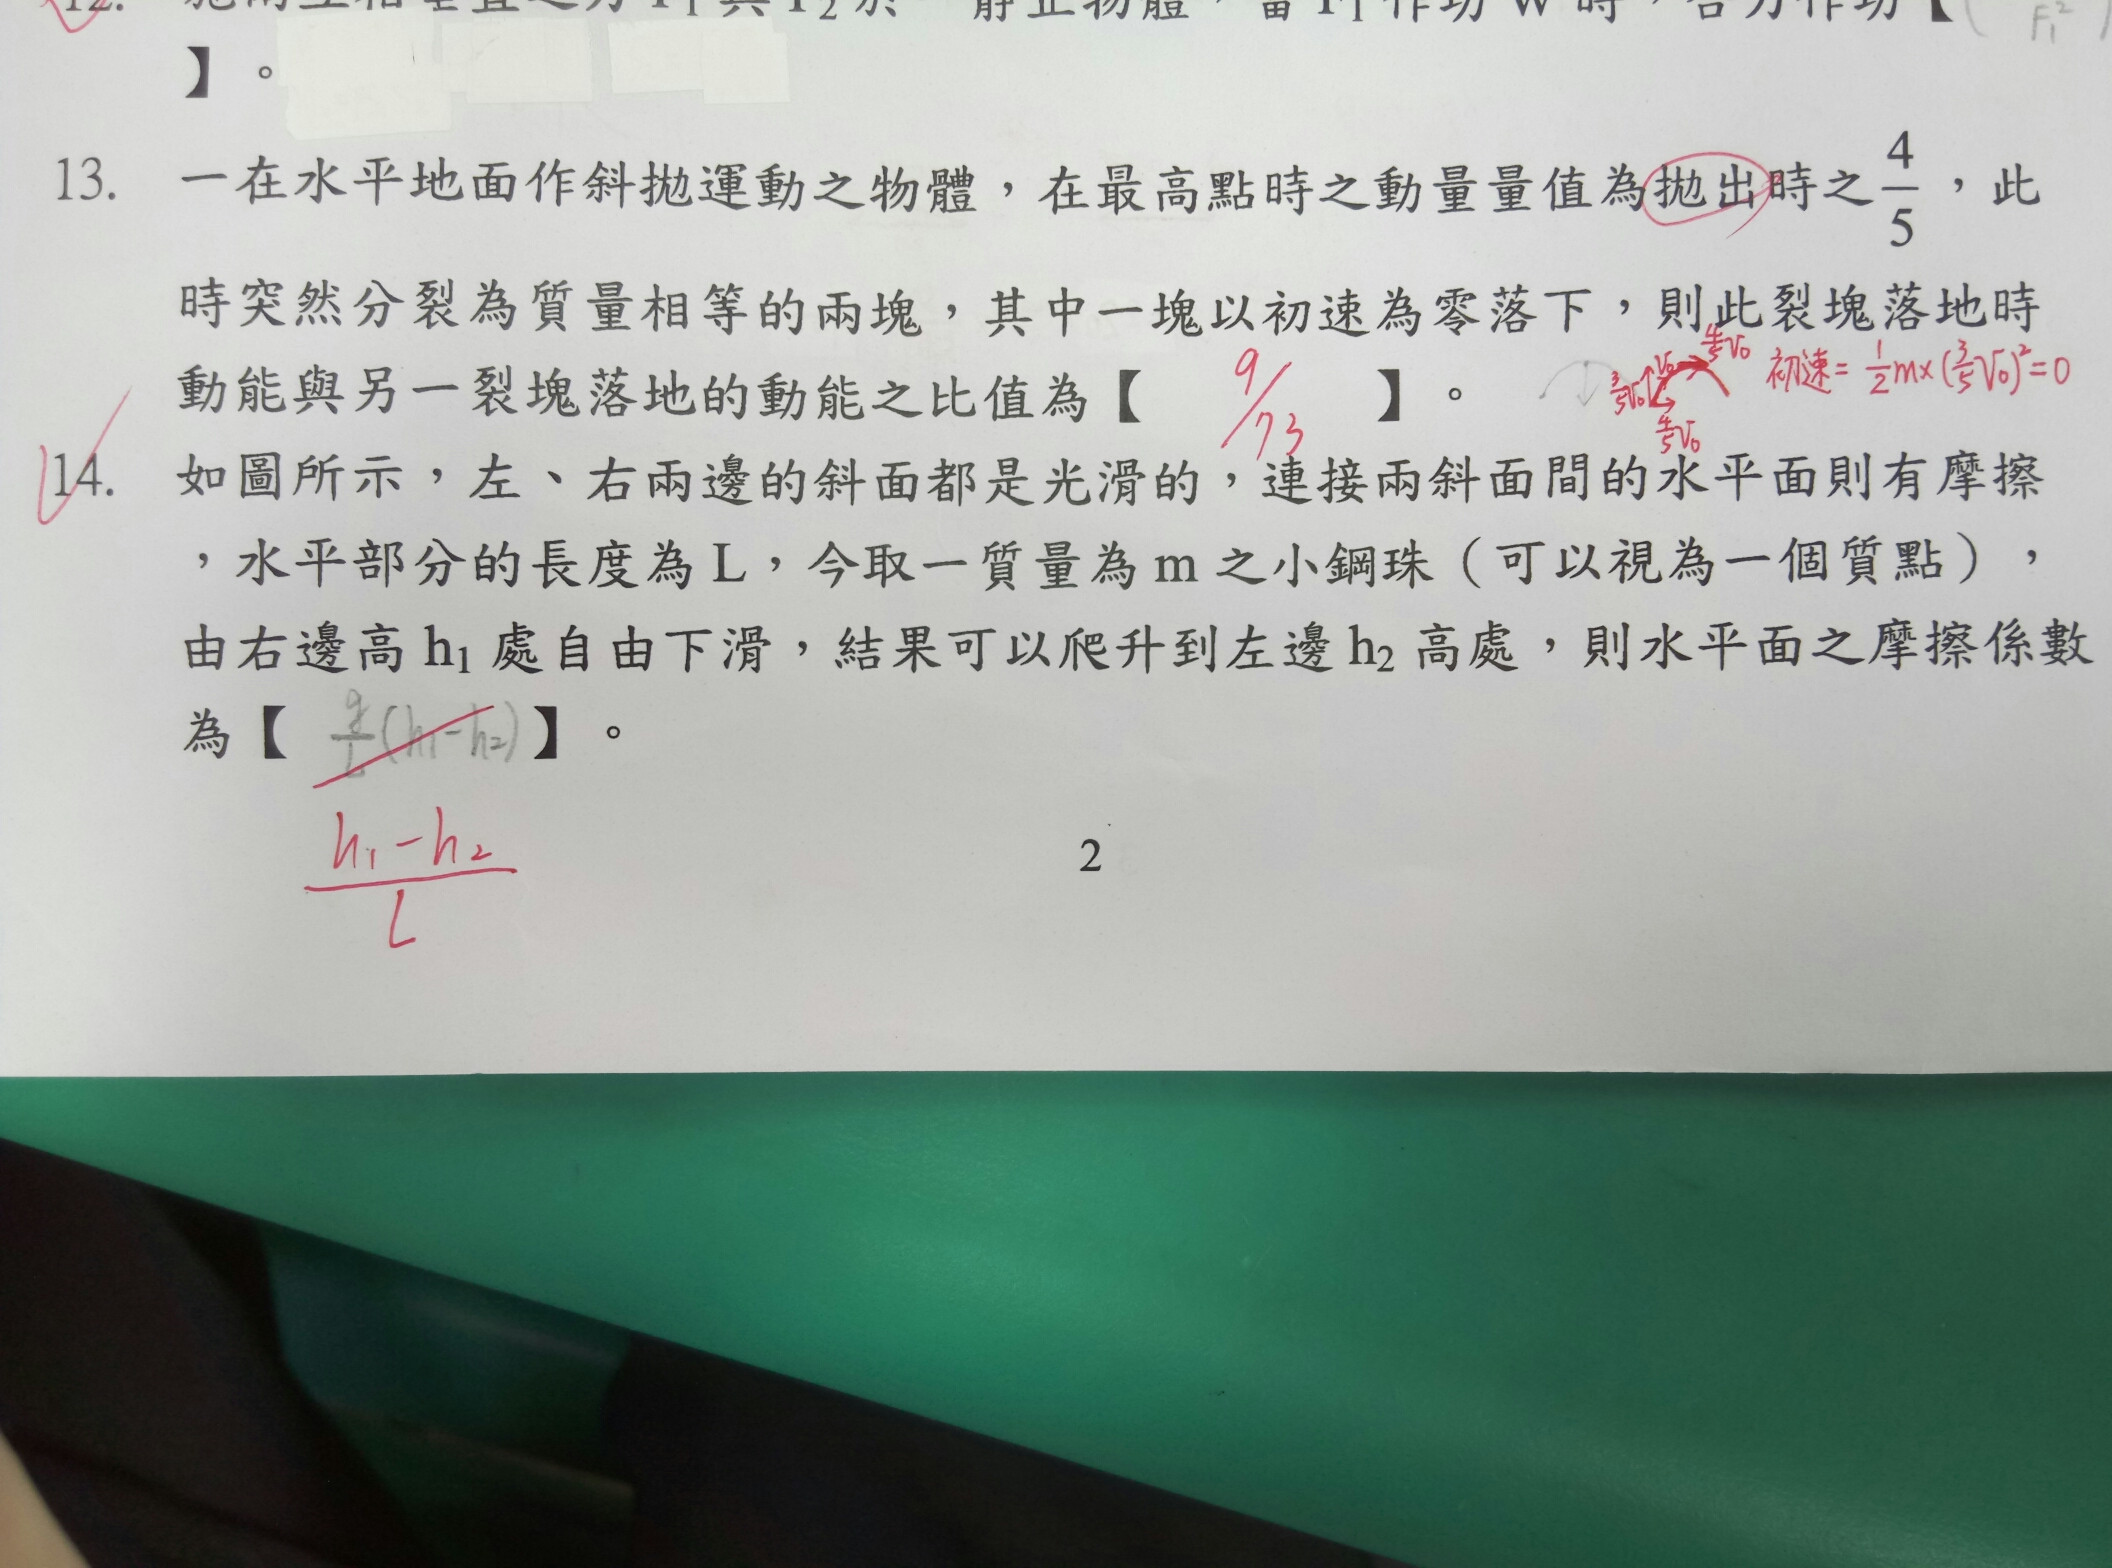 12. 施兩互相垂直之力 F₁ 與 F₂ 於一靜止物體,當 F₁ 作功 W 時,合力作功【 F₁²
】。
13. 一在水平地面作斜拋運動之物體,在最高點時之動量量值為拋出時之4/5,此
時突然分裂為質量相等的兩塊,其中一塊以初速為零落下,則此裂塊落地時
動能與另一裂塊落地的動能之比值為【 9/73 】。
3/5V₀ V₀ 4/5V₀ 初速= 1/2m×(3/5V₀)²=0
4/5V₀
14. 如圖所示,左、右兩邊的斜面都是光滑的,連接兩斜面間的水平面則有摩擦
,水平部分的長度為 L,今取一質量為 m 之小鋼珠(可以視為一個質點),
由右邊高 h₁ 處自由下滑,結果可以爬升到左邊 h₂ 高處,則水平面之摩擦係數
為【 g/L(h₁-h₂)】。
h₁-h₂/L
2